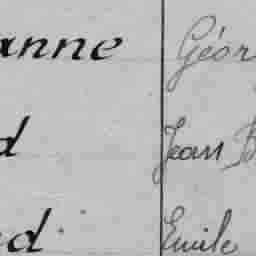 anne Géor
d Jean B
ed Emile